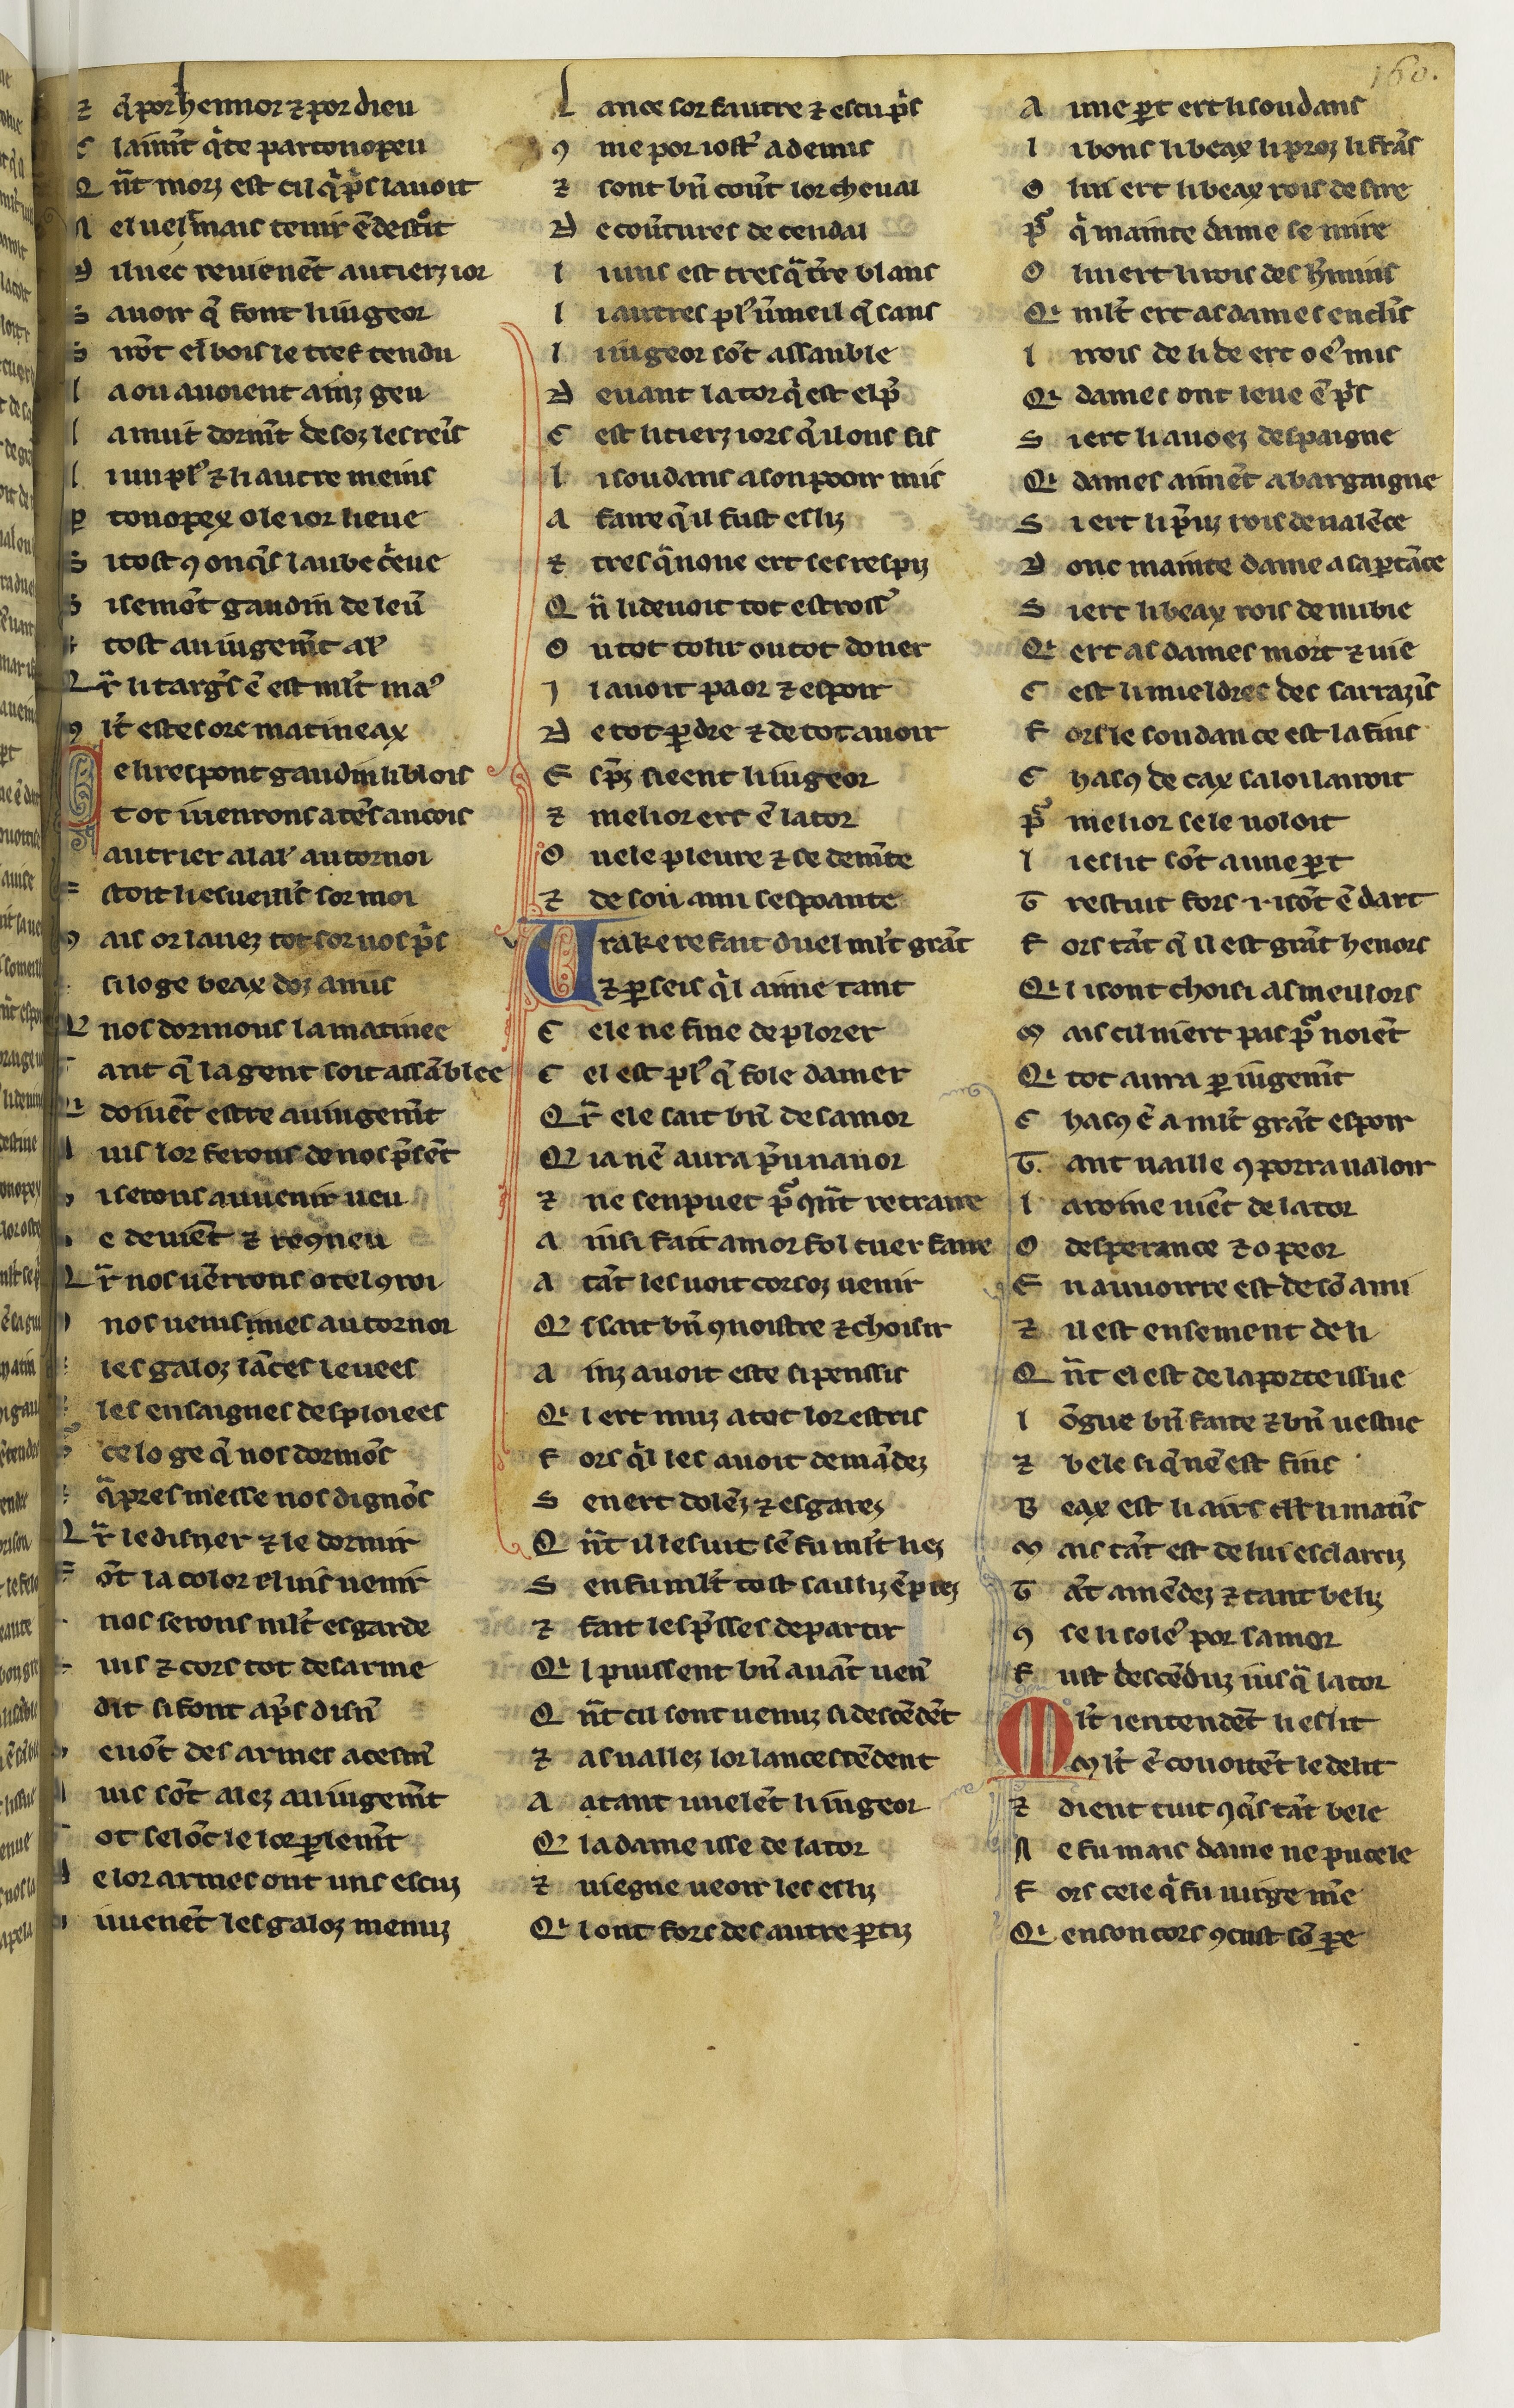 160.
⁊ q̃ por hennor ⁊ por dieu
s laimt̃ q̃te partonopeu
Q nt̃ morz est cil q̃ p̃s lauoit
N el uel mais tenir ẽ destoit
D iluec reuienẽt au tierz ior
S auoir q̃ font li iugeor
S uõt el bois le tref tendu
l a ou auoient ainz geu
l a nuit dormt̃ desoz les reĩs
l i un plꝰ ⁊ li autre meins
ꝑ tonopex o le ior lieue
S i tost ꝯ onq̃s laube c̃eue
S i semõt gaudin de leũ
⁊ tost au iugemt̃ alꝰ
Q r̃ li targrs̃ ẽ est ml̃t maꝰ
ꝯ lt̃ estes ore matineax
C e li respont gaudin li blois
t ot i uenrons a tẽs ancois
l autrier alaꝰ au tornoi
E stoit li esueniꝰs sor moi
M ais or lauez tot sor uos p̃s
⁊ si lo ge beax doz amis
Q nos dormons la matinee
T ant q̃ la gent soit assãblee
Qi doiuẽt estre au iugemt̃
l uis lor ferons de nos p̃sẽt
S i serons au uenir ueu
⁊ e deuiẽt ⁊ reꝯneu
Q r̃ nos uẽrrons o tel ꝯroi
ꝯ nos uenismes au tornoi
⁊ les galoz lãces leuees
⁊ les ensaignes desploiees
⁊ ce lo ge q̃ nos dormõs
⁊ q̃pres messe nos dignõs
Q r̃ le disner ⁊ le dormir
F õt la color el uis uenir
⁊ nos serons ml̃t esgarde
⁊ uis ⁊ cors tot desarme
⁊ dit si font ap̃s disñ
l euõt des armes acesm̃
P uis sõt alez au iugemt̃
T ot selõc le lor ꝑlemt̃
D e lor armes ont uns escuz
⁊ i uienẽt les galoz menuz
L ance sor fautre ⁊ escu p̃s
ꝯ me por iostꝰ ademis
⁊ sont bñ couũt lor cheual
D e couũtures de cendal
l i uns est tresq̃ t̃re blans
l i autres plꝰ ũmeil q̃ sans
l i iugeor sõt assamble
D euant la tor q̃ est el p̃
C est li tierz iors q̃ il ont sis
l i soudans a son pooir mis
A faire q̃ il fust esliz
⁊ tresq̃ none ert ses respiz
Q ñ li deuoit tot estrossꝰ
O u tot tolir ou tot doner
J l auoit paor ⁊ espoir
D e tot ꝑdre ⁊ de tot auoir
E sp̃z sieent li iugeor
⁊ melior ert ẽ la tor
O uele pleure ⁊ se demt̃e
⁊ de son ami sespoante
U rake refait duel ml̃t grãt
⁊ ꝑseis q̃l aime tant
C ele ne fine de plorer
C el est plꝰ q̃ fole damer
Q r̃ ele sait bñ de samor
Q ia nẽ aura p̃u nauor
⁊ ne senpuet p̃ qnt̃ retraire
A insi fait amor fol cuer faire
A tãt les uoit torsoz uenir
Q s sait bñ ꝯnoistre ⁊ choisir
A inz auoit este si penssis
Qi l ert muz a tot lor estris
F ors q̃l les auoit demãdez
S en ert dolẽz ⁊ esgarez
Q nt̃ il les uit sẽ fu ml̃t liez
S en fu ml̃t tost sailliz ẽ piez
⁊ fait les p̃sses departir
Qi l puissent bñ auãt ueñ
Q nt̃ cil sont uenuz si descẽdẽt
⁊ as uallez lor lances tẽdent
A atant iuielẽt li iugeor
Q la dame isse de la tor
⁊ uiegne ueoir les esliz
Qi l ont fors des autre ꝑtiz
A une ꝑt ert li soudans
l i bons li beax li proz li frãs
O lui ert li beax rois de sire
P̃ q̃ mainte dame se mire
O lui ert li rois des h̃mins
Qi ml̃t ert as dames enclĩs
l i rois de lide ert o eꝰ mis
Qi dames ont leue ẽ p̃s
S i ert li auoez despaigne
Qi dames aimẽt a bargaigne
S i ert li p̃uz rois de ualẽce
D ont mainte dame a sa ꝑtãce
S i ert li beax rois de nubie
Qi ert as dames mort ⁊ uie
C est li mieldres des sarrazĩs
F ors le soudan ce est la fins
C hascꝯ de cax sa loi lairoit
P̃ melior se le uoloit
l i eslit sõt a une ꝑt
T restuit fors .i. i sõt ẽ dart
F ors tãt q̃ il est grãt henors
Qi l i sont choisi as meillors
M ais cil niert pas p̃ noiẽt
Qi tot aura ꝑ iugemt̃
C hascꝯ ẽ a ml̃t grãt espoir
T. ant uaille ꝯ porra ualoir
l a roine uiẽt de la tor
O desperance ⁊ o peor
E n auuoirre est de sõ ami
⁊ il est ensement de li
Q nt̃ el est de la porte issue
l õgue bñ faite ⁊ bñ uestue
⁊ bele si q̃ nẽ est fins
B eax est li airs cl̃t li matĩs
M ais tãt est de lui esclarciz
T ãt amẽdez ⁊ tant beliz
ꝯ se li soleꝰ por samor
F ust descẽduz iusq̃ la tor
M lt̃ i entendẽt li eslit
M lt̃ ẽ couoitẽt le delit
⁊ dient tuit ꝯq̃s tãt bele
N e fu mais dame ne pucele
F ors cele q̃ fu uirge m̃e
Qi en son cors ꝯcust sõ ꝑe